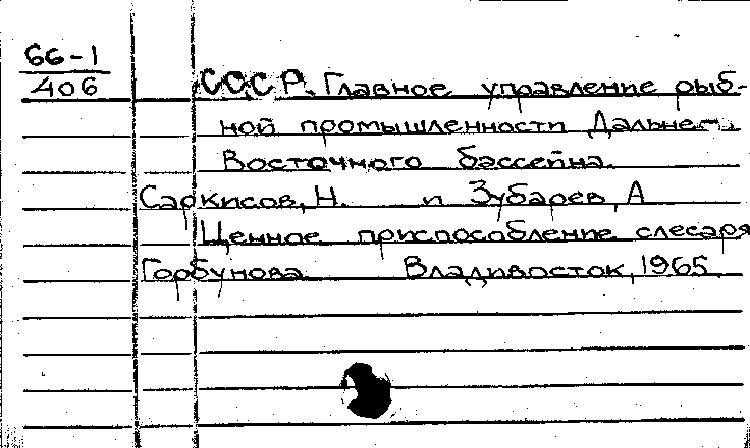 66-1
406
СССР. Главное управление рыб-
ной промышленности Дальне-
Восточного бассейна.
Саркисов, Н. и Зубарев, А
Ценное приспособление слесаря
Горбунова. Владивосток, 1965.